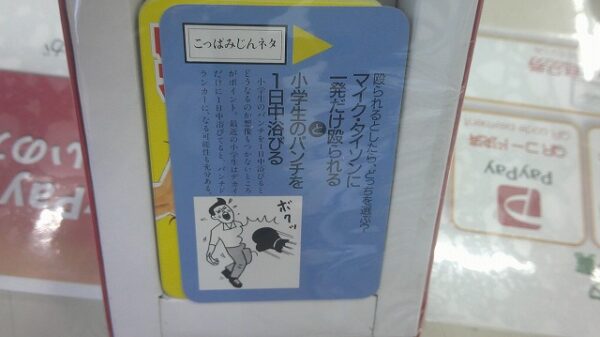 こっぱみじんネタ
殴られるとしたら、どっちを選ぶ?
マイク・タイソンに
一発だけ殴られる
と
小学生のパンチを
1日中浴びる
小学生のパンチを1日中浴びると
どうなるのか想像もつかないところ
がポイント。最近の小学生はデカイ
だけに1日中浴びてると、パンチド
ランカーに、なる可能性も充分ある。
ボクッ
PayPay
QRコード決済
QR code payment
Pay
いの